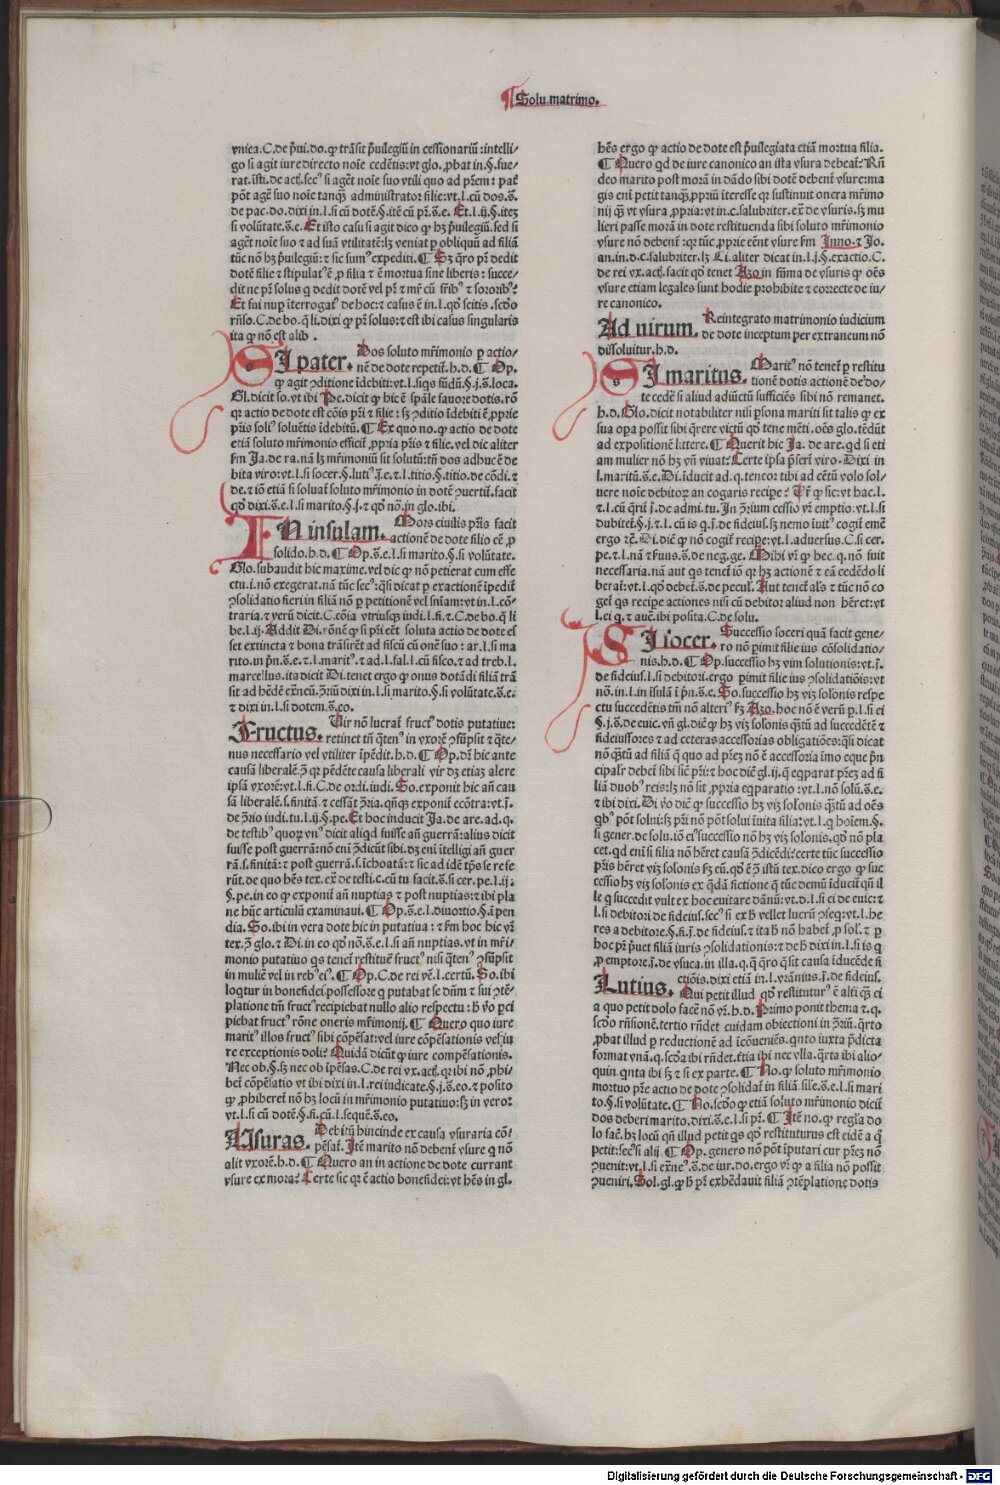 ¶ Solu. matrimo.
vnica. C. de p̄ui. do. ꝙ trāsit p̄uilegiū in cessionariū: intelli/
go si agit iure directo noīe cedētis: vt glo. ꝓbat in. §. fue/
rat. īsti. de act̄. secꝰ si agēt noīe suo vtili quo ad p̄rem: pat̄
pōt agē suo noīe tanq̄ȝ administrator filie: vt. l. cū dos. s̄.
de pac. do. dixi in. l. si cū dotē. §. itē cū pr̄. s̄. e. Et. l. ij. §. iteȝ
si volūtate. s̄. e. Et isto casu si agit dico ꝙ hȝ p̄uilegiū. sed si
agēt noīe suo ⁊ ad suā vtilitatē: lȝ veniat ꝑ obliquū ad filiā
tūc nō hȝ p̄uilegiū: ⁊ sic sumꝰ expediti. ¶ Sȝ q̄ro pr̄ dedit
dotē filie ⁊ stipulatꝰ ē ꝓ filia ⁊ ē mortua sine liberis: succe/
dit ne pr̄ solus q dedit dotē vel pr̄ ⁊ mr̄ cū fr̄ibꝰ ⁊ sororibꝰ?
Et fui nuꝑ īterrogatꝰ de hoc: ⁊ casus ē in. l. qd̄ scitis. scd̄o
rn̄so. C. de bo. q̄ li. dixi ꝙ pr̄ solus: ⁊ est ibi casus singularis
ita ꝙ nō est alib.
SI pater. Dos soluto mr̄imonio ꝑ actio/
nē de dote repetit̄. h. d. ¶ Op.
ꝙ agit ↄditione īdebiti: vt. l. siqs fūdū. §. j. s̄. loca.
Gl. dicit so. vt ibi Pe. dicit ꝙ hic ē spāle fauore dotis. rō
qr actio de dote est cōis pr̄i ⁊ filie: sȝ ↄditio īdebiti ē ꝓprie
pr̄is soliꝰ soluētis īdebitū. ¶ Ex quo no. ꝙ actio de dote
etiā soluto mr̄imonio efficit̄ ꝓpria pr̄is ⁊ filie. vel dic aliter
fm Ja. de ra. nā lȝ mr̄imoniū sit solutū: tn̄ dos adhuc ē de
bita viro: vt. l. si socer. §. lutiꝰ. J. e. ⁊. l. titio. §. titio. de cōdi. ⁊
de. ⁊ iō etiā si soluat̄ soluto mr̄imonio in dotē ↄuertit̄. facit
qd̄ dixi. s̄. e. l. si marito. §. j. ⁊ qd̄ no. in glo. ibi.
IN insulam. Mors ciuilis pr̄is facit
actionē de dote filio eē ꝓ
solido. h. d. ¶ Op. s̄. e. l. si marito. §. si volūtate.
Glo. subaudit hic maxime. vel dic ꝙ nō petierat cum effe
ctu. i. nō exegerat. nā tūc secꝰ: q̄si dicat ꝑ exactionē īpedit̄
ↄsolidatio fieri in filiā nō ꝑ petitionē vel sn̄iam: vt in. l. cō/
traria. ⁊ verū dicit. C. cōia vtriusqꝫ iudi. l. fi. ⁊. C. de bo. q̄ li
be. l. ij. Addit Di. rōnē ꝙ si pr̄i eēt soluta actio de dote es
set extincta ⁊ bona trāsirēt ad fiscū cū onē suo: ar. l. si ma
rito. in pn̄. s̄. e. ⁊. l. maritꝰ. ⁊ ad. l. fal. l. cū fisco. ⁊ ad treb. l.
marcellus. ita dicit Di. tenet ergo ꝙ onus dotādi filiā trā
sit ad hēdē exn̄eū. ↄ̄riū dixi in. l. si marito. §. si volūtate. s̄. e.
⁊ dixi in. l. si dotem. s̄. eo.
Fructus. Vir nō lucrat̄ fructꝰ dotis putatiue:
retinet tn̄ q̄tenꝰ in vxorē ↄsūpsit ⁊ q̄te/
nus necessario vel vtiliter īpēdit. h. d. ¶ Op. dr̄ hic ante
causā liberalē. ↄ̄ qr pēdēte causa liberali vir dȝ etiaȝ alere
ipsā vxorē: vt. l. fi. C. de ordi. iudi. So. exponit hic an̄ cau
sā liberalē. s. finitā. ⁊ cessāt ↄ̄ria. qn̄qꝫ exponit̄ ecōtra: vt. J.
de ↄ̄rio iudi. tu. l. ij. §. pe. Et hoc inducit Ja. de are. ad. q.
de testibꝰ quoꝝ vnꝰ dicit aliqd fuisse an̄ guerrā: alius dicit
fuisse post guerrā: nō enī ↄ̄dicūt sibi. dȝ enī ītelligi an̄ guer
rā. s. finitā: ⁊ post guerrā. s. īchoatā: ⁊ sic ad idē tp̄s se refe
rūt. de quo hēs tex. ex̄ de testi. c. cū tu facit. s̄. si cer. pe. l. ij.
§. pe. in eo ꝙ exponit̄ an̄ nuptias ⁊ post nuptias: ⁊ ibi pla
ne hūc articulū examinaui. ¶ Op. s̄. e. l. diuortio. §. īpen
dia. So. ibi in vera dote hic in putatiua: ⁊ fm hoc hic vr̄
tex. ↄ̄ glo. ⁊ Di. in eo qd̄ nō. s̄. e. l. si an̄ nuptias. vt in mr̄i/
monio putatiuo qs tenet̄ restituē fructꝰ nisi q̄tenꝰ ↄsūpsit
in muliē vel in rebꝰ eiꝰ. ¶ Op. C. de rei vē. l. certū. So. ibi
loqtur in bonefidei possessore q putabat se dn̄m ⁊ sui ↄtē/
platione tm̄ fructꝰ recipiebat nullo alio respectu: h̄ vo ꝑci
piebat fructꝰ rōne oneris mr̄imonij. ¶ Quero quo iure
maritꝰ illos fructꝰ sibi cōpēsat: vel iure cōpēsationis vel iu
re exceptionis doli? Quidā dicūt ꝙ iure compēsationis.
Nec ob. §. sȝ nec ob īpēsas. C. de rei vx. act̄. qr ibi nō ꝓhi/
bet̄ cōpēsatio vt ibi dixi in. l. rei iudicate. §. j. s̄. eo. ⁊ posito
ꝙ ꝓhiberet̄ nō hȝ locū in mr̄imonio putatiuo: sȝ in vero:
vt. l. si cū dotē. §. fi. cū. l. sequē. s̄. eo.
Vsuras. Debitū hincinde ex causa vsuraria cō/
pēsat̄. Itē marito nō debent̄ vsure q nō
alit vxorē. h. d. ¶ Quero an in actione de dote currant
vsure ex mora? Certe sic qr ē actio bonefidei: vt hēs in gl.
hēs ergo ꝙ actio de dote est p̄uilegiata etiā mortua filia.
¶ Quero qd de iure canonico an ista vsura debeat̄? Rn̄
deo marito post morā in dādo sibi dotē debent̄ vsure: ma
gis enī petit tanq̄ȝ ꝓpriū īteresse qr sustinuit onera mr̄imo
nij q̄ȝ vt vsura ꝓpria: vt in. c. salubriter. ex̄ de vsuris. sȝ mu
lieri passe morā in dote restituenda sibi soluto mr̄imonio
vsure nō debent̄: qr tūc ꝓprie eēnt vsure fm Inno. ⁊ Jo.
an. in. d. c. salubriter. lȝ Ci. aliter dicat in. l. j. §. exactio. C.
de rei vx. act̄. facit qd̄ tenet Azo in sūma de vsuris ꝙ oēs
vsure etiam legales sunt hodie prohibite ⁊ correcte de iu/
re canonico.
Ad uirum. Reintegrato matrimonio iudicium
de dote inceptum per extraneum nō
dissoluitur. h. d.
SI maritus. Maritꝰ nō tenet̄ ꝑ restitu
tionē dotis actionē de do/
te cedē si aliud adiūctū sufficiēs sibi nō remanet.
h. d. Glo. dicit notabiliter nisi ꝑsona mariti sit talis ꝙ ex
sua oꝑa possit sibi q̄rere victū qd̄ tene mēti. oēs glo. tēdūt
ad expositionē littere. ¶ Querit hic Ja. de are. qd si eti
am mulier nō hȝ vn̄ viuat? Certe ipsa p̄fert̄ viro. Dixi in
l. maritū. s̄. e. Di. īducit ad. q. teneor tibi ad cētū volo sol/
uere noīe debitoꝝ an cogaris recipe? Vr̄ ꝙ sic: vt hac. l.
⁊. l. cū q̄rit̄ J. de admi. tu. In ↄ̄rium cessio vr̄ emptio. vt. l. si
dubitet̄. §. j. ⁊. l. cū is q. J. de fideiuf. sȝ nemo īuitꝰ cogit̄ emē
ergo ⁊c. Di. dic ꝙ nō cogit̄ recipe: vt. l. aduersus. C. si cer.
pe. ⁊. l. nā ⁊ fuus. s̄. de neg. ge. Mihi vr̄ ꝙ hec. q. nō fuit
necessaria. nā aut qs tenet̄ iō qr hȝ actionē ⁊ eā cedēdo li
berat̄: vt. l. qd̄ debet̄. s̄. de pecul̄. Aut tenet̄ al̄s ⁊ tūc nō co
get̄ qs recipe actiones nisi cū debitor aliud non hēret: vt
l. ei q. ⁊ auc̄. ibi posita. C. de solu.
SI socer. Successio soceri quā facit gene/
ro nō ꝑimit filie ius cōsolidatio/
nis. h. d. ¶ Op. successio hȝ vim solutionis: vt. J.
de fideiuf. l. si debitori. ergo ꝑimit filie ius ↄsolidatiōis: vt
nō. in. l. in īsulā ī pn̄. s̄. e. So. successio hȝ viȝ solōnis respe
ctu succedētis tm̄ nō alteriꝰ fȝ Azo. hoc nō ē verū ꝑ. l. si ei
§. j. s̄. de euic. vn̄ gl. dic ꝙ hȝ viȝ solōnis q̄tū ad succedētē ⁊
fideiussores ⁊ ad ceteras accessorias obligatiōes: q̄si dicat
nō q̄tū ad filiā q̄ quo ad pr̄eȝ nō ē accessoria īmo eque pn̄
cipalꝰ debet̄ sibi sic pr̄i: ⁊ hoc dic gl. ij. q̄ eqꝑarat pr̄eȝ ad fi
liā duobꝰ reis: lȝ nō sit ꝓpria eqꝑaratio: vt. l. nō solū. s̄. e.
⁊ ibi dixi. Di. vo dic ꝙ successio hȝ viȝ solōnis q̄tū ad oēs
qbꝰ pōt solui: sȝ pr̄i nō pōt solui īuita filia: vt. l. q hoīem. §.
si gener. de solu. iō eiꝰ successio nō hȝ viȝ solōnis. qd̄ nō pla
cet. qd enī si filia nō hēret causā ↄ̄dicēdi? certe tūc successio
pr̄is hēret viȝ solōnis sȝ eū. qd̄ ē ↄ̄ istū tex. dico ergo ꝙ suc
cessio hȝ viȝ solōnis ex q̄dā fictione q̄ tūc demū īducit̄ qn̄ il
le q succedit vult ex hoc euitare dānū: vt. d. l. si ei de euic: ⁊
l. si debitori de fideiuf. secꝰ si ex h̄ vellet lucrū ↄseq: vt. l. he
res a debitore. §. fi. J. de fideiuf. ⁊ ita h̄ nō habet̄ ꝓ sol̄. ⁊ ꝑ
hoc pr̄ p̄uet filiā iuris ↄsolidationis: ⁊ de h̄ dixi in. l. si is q
ꝓ emptore. J. de vsuca. in illa. q. q̄ q̄ro q̄ sit causa īducēde fi
ctiōis. dixi etiā in. l. vrāniꝰ. J. de fideius.
Lutius. Qui petit illud qd̄ restiturꝰ ē alti q̄ȝ ei
a quo petit dolo facē nō vr̄. h. d. Primo ponit thema ⁊. q.
scd̄o rn̄sionē. tertio rn̄det cuidam obiectioni in ↄ̄riū. q̄rto
ꝓbat illud ꝑ reductionē ad īcōueniēs. qnto iuxta p̄dicta
format vnā. q. scd̄a ibi rn̄det. t̄tia ibi nec vlla. q̄rta ibi alio/
quin. qnta ibi sȝ ⁊ si ex parte. ¶ No. ꝙ soluto mr̄imonio
mortuo pr̄e actio de dote ↄsolidat̄ in filiā sile. s̄. e. l. si mari
to. §. si volūtate. ¶ No. scd̄o ꝙ etiā soluto mr̄imonio dicit̄
dos deberi marito. dixi. s̄. e. l. si pr̄. ¶ Itē no. ꝙ regl̄a do
lo fac̄. hȝ locū qn̄ illud petit qs qd̄ restituturus est eidē a q̄
petit: secꝰ si alij. ¶ Op. genero nō pōt īputari cur pr̄eȝ nō
ↄuenit: vt. l. si exn̄eꝰ. s̄. de iur. do. ergo vr̄ ꝙ a filia nō possit
ↄueniri. Sol. gl. ꝙ h̄ pr̄ exhēdauit filiā ↄtēplatione dotis
Digitalisierung gefördert durch die Deutsche Forschungsgemeinschaft - DFG